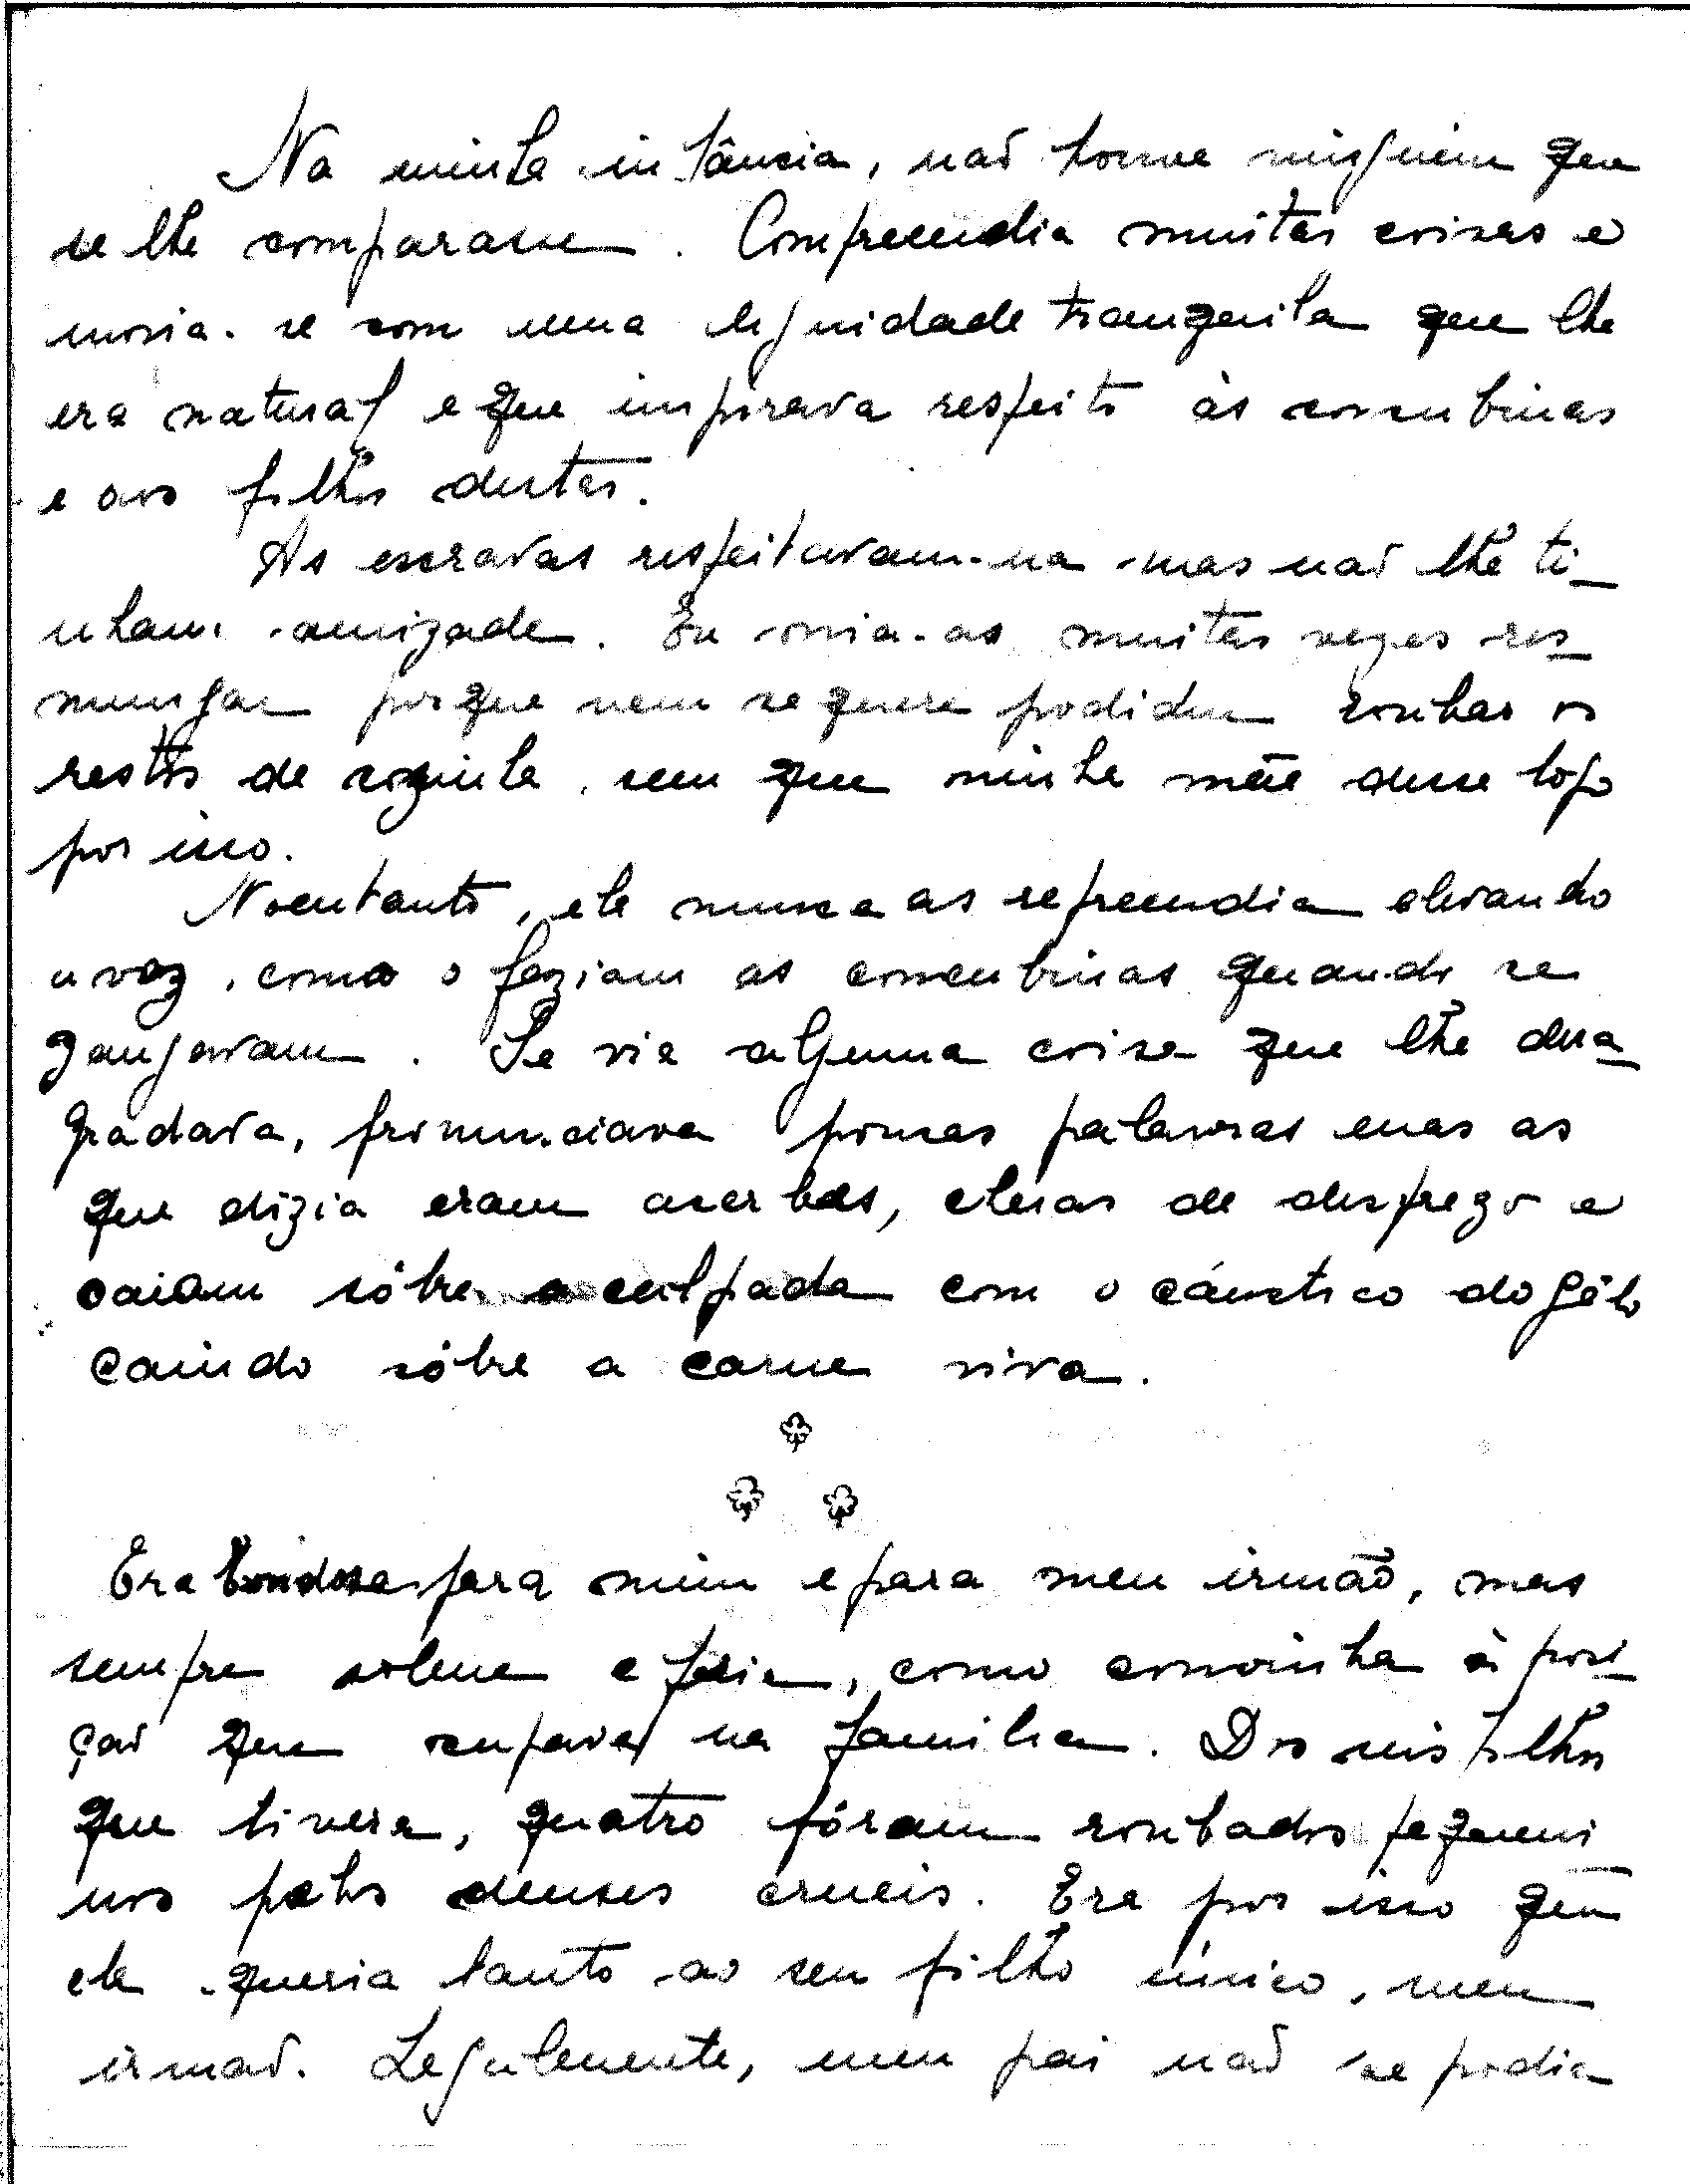 Na minha infância, não houve ninguém que
se lhe comparasse. Compreendia muitas coisas e
movia-se com uma dignidade tranquila que lhe
era natural e que inspirava respeito às concubinas
e aos filhos destas.
As escravas respeitavam-na mas não lhe ti-
nham amizade. Eu ouvia-as muitas vezes res-
mungar porque nem sequere podiam roubar os
restos de cozinha, sem que minha mãe desse logo
por isso.
Noentanto, ela nunca as repreendia elevando
a voz, como o faziam as concubinas quando se
zangavam. Se via alguma coisa que lhe desa-
gradava, pronunciava poucas palavras mas as
que dizia eram acerbas, cheias de desprezo e
caiam sôbre a culpada com o cáustico do gêlo
caindo sôbre a carne viva.
Era bondosa para mim e para meu irmão, mas
sempre solene e fria, como convinha à posi-
ção que ocupava na familia. Dos seis filhos
que tivera, quatro fôram roubados pequeni-
nos pelos deuses crueis. Era por isso que
ela queria tanto ao seu filho único, meu
irmão. Legalmente, meu pai não se podia